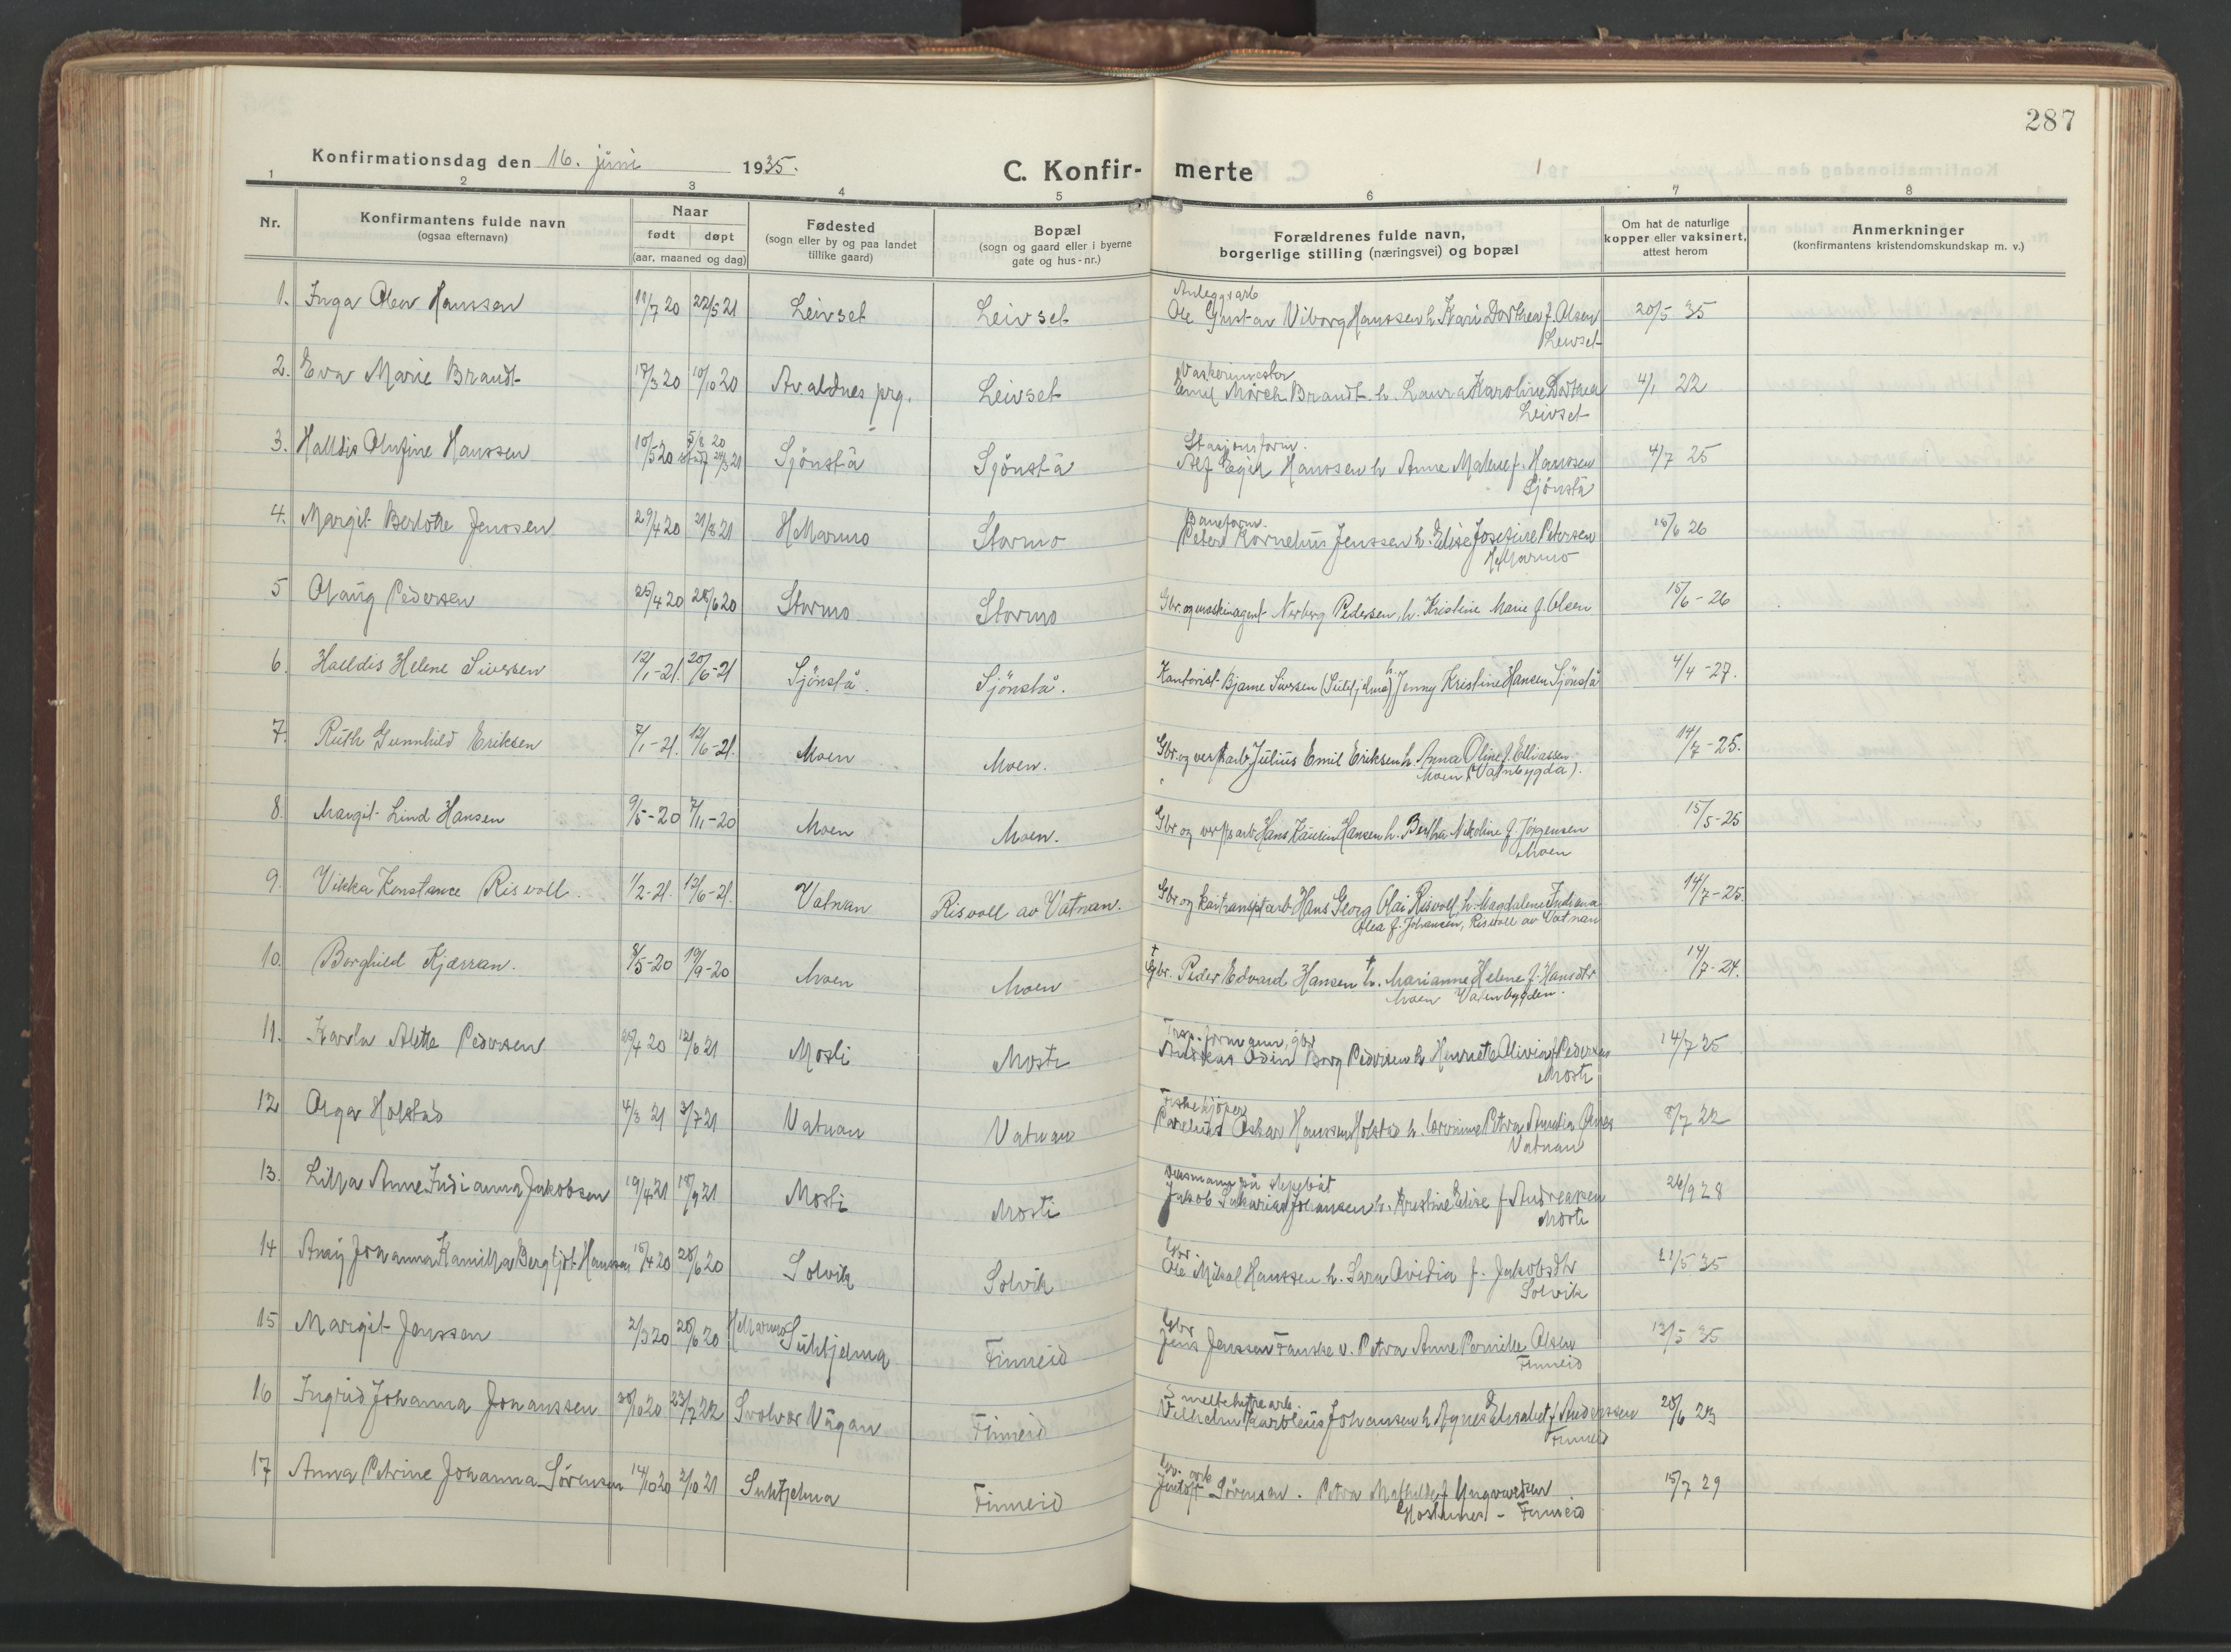 287
Konfirmationsdag den 16. juni 1935.
C. Konfir- merte
1 2 3 4 5 6 7 8
Nr.
Konfirmantens fulde navn
(ogsaa efternavn)
Naar
født døpt
(aar, maaned og dag)
Fødested
(sogn eller by og paa landet
tillike gaard)
Bopæl
(sogn og gaard eller i byerne
gate og hus-nr.)
Forældrenes fulde navn,
borgerlige stilling (næringsvei) og bopæl
Om hat de naturlige
kopper eller vaksinert,
attest herom
Anmerkninger
(konfirmantens kristendomskundskap m. v.)
Anleggsarb
1. Inga Olea Hanssen 11/7 20 22/5 21 Leivset Leivset Ole Gustav Viborg Hanssen h. Kari Dorthea f. Olsen 20/5 35
Leivset
Vaskerimester
2. Eva Marie Brandt 17/3 20 10/10 20 Avaldnes prg. Leivset Emil Mörch Brandt h. Laura Karoline Dorthea 4/1 22
Leivset
Stasjonsform.
3. Halldis Olufine Hanssen 10/5 20 5/8 20 21 Sjönstå Sjönstå Alf Hanssen h Anne Malene f. Hanssen 4/7 25
Sjönstå
Baneform.
4. Margit Berlotte Jenssen 29/4 20 21/8 21 HMarmo Stormo Peder Kornelius Jenssen h. Elise Josefine Petersen 15/6 26
HMarmo
5 Olaug Pedersen 25/4 20 28/6 20 Stormo Stormo Gbr. og maskinagent Norberg Pedersen, h. Kristine Marie f. Olsen 15/6-26
6. Halldis Helene Sivertsen 12/1-21. 20/6-21 Sjönstå. Sjönstå. Kontorist Bjarne Sivertsen (Sulitjelma) h. Jenny Kristine Hansen Sjönstå 4/4-27.
7. Ruth Gunnhild Eriksen 7/1-21. 12/6-21. Moen Moen. Gbr. og verkarb Julius Emil Eriksen h. Anna Oline f. Elliassen. 14/7-25.
Moen (Vatnbygda).
8. Margit Lind Hansen 9/5-20 7/11-20 Moen Moen. Gbr og arb Hans Hansen h. Bertha Nikoline f. Jörgensen 15/5-25
Moen
9. Vikka Konstance Risvoll. 1/2-21. 12/6-21. Vatnan Risvoll av Vatnan. Gbr og arb Hans Georg Olai Risvoll, h. Magdalene Indiana 14/7-25
Olea f. Johansen, Risvoll av Vatnan
10. Borghild Kjærran. 8/5-20 19/9-20 Moen Moen † Gbr. Peder Edvard Hansen † h. Marianne Helene f. Hansdtr 14/7-24.
Moen Vatnbygden.
formann, gbr
11. Karla Alette Pedersen 25/4 20 12/6 21 Mosti Mosti Andreas Odin Borg Pedersen h Henriette Olivia f Pedersen 14/7 25
Mosti
Fiskekjöper
12 Olga Holstad 4/3 21 3/7 21 Vatnan Vatnan Oskar Hanssen Holstad h. Petra Amalia 8/7 22
Vatnan
på slepebåt
13. Lilla Anne Indianna Jakobsen 19/4 21 18/9 21 Mosti Mosti Jakob Sakarias Johansen h. Kristine Elise f Andreassen 26/9 28
Mosti
Gbr.
14 Amy Johanna Kamilla Bergljot Hanssen 15/4 20 28/6 20 Solvik Solvik Ole Mikal Hanssen h. Sara Ovidia f. Jakobsdtr 21/5 35
Solvik
HMarmo Gbr
15 Margit Jenssen 2/3 20 20/6 20 Sulitjelma Finneid Jens Jenssen Fauske v. Petra Anne Pernille Olsen 13/5 35
Finneid
Smeltehyttearb.
16 Ingrid Johanna Johanssen 30/10 20 23/7 22 Svolvær Vågan Finneid Vilhelm Karolius Johansen h Agnes Elisabet f Anderssen 28/6 23
Finneid
Gbr. arb
17 Anna Petrine Johanna Sörensen 14/10 20 2/10 21 Sulitjelma Finneid Jentoft Sörensen. Petra Mathilde f Yngvardsen 15/7 29
Hosthines - Finneid